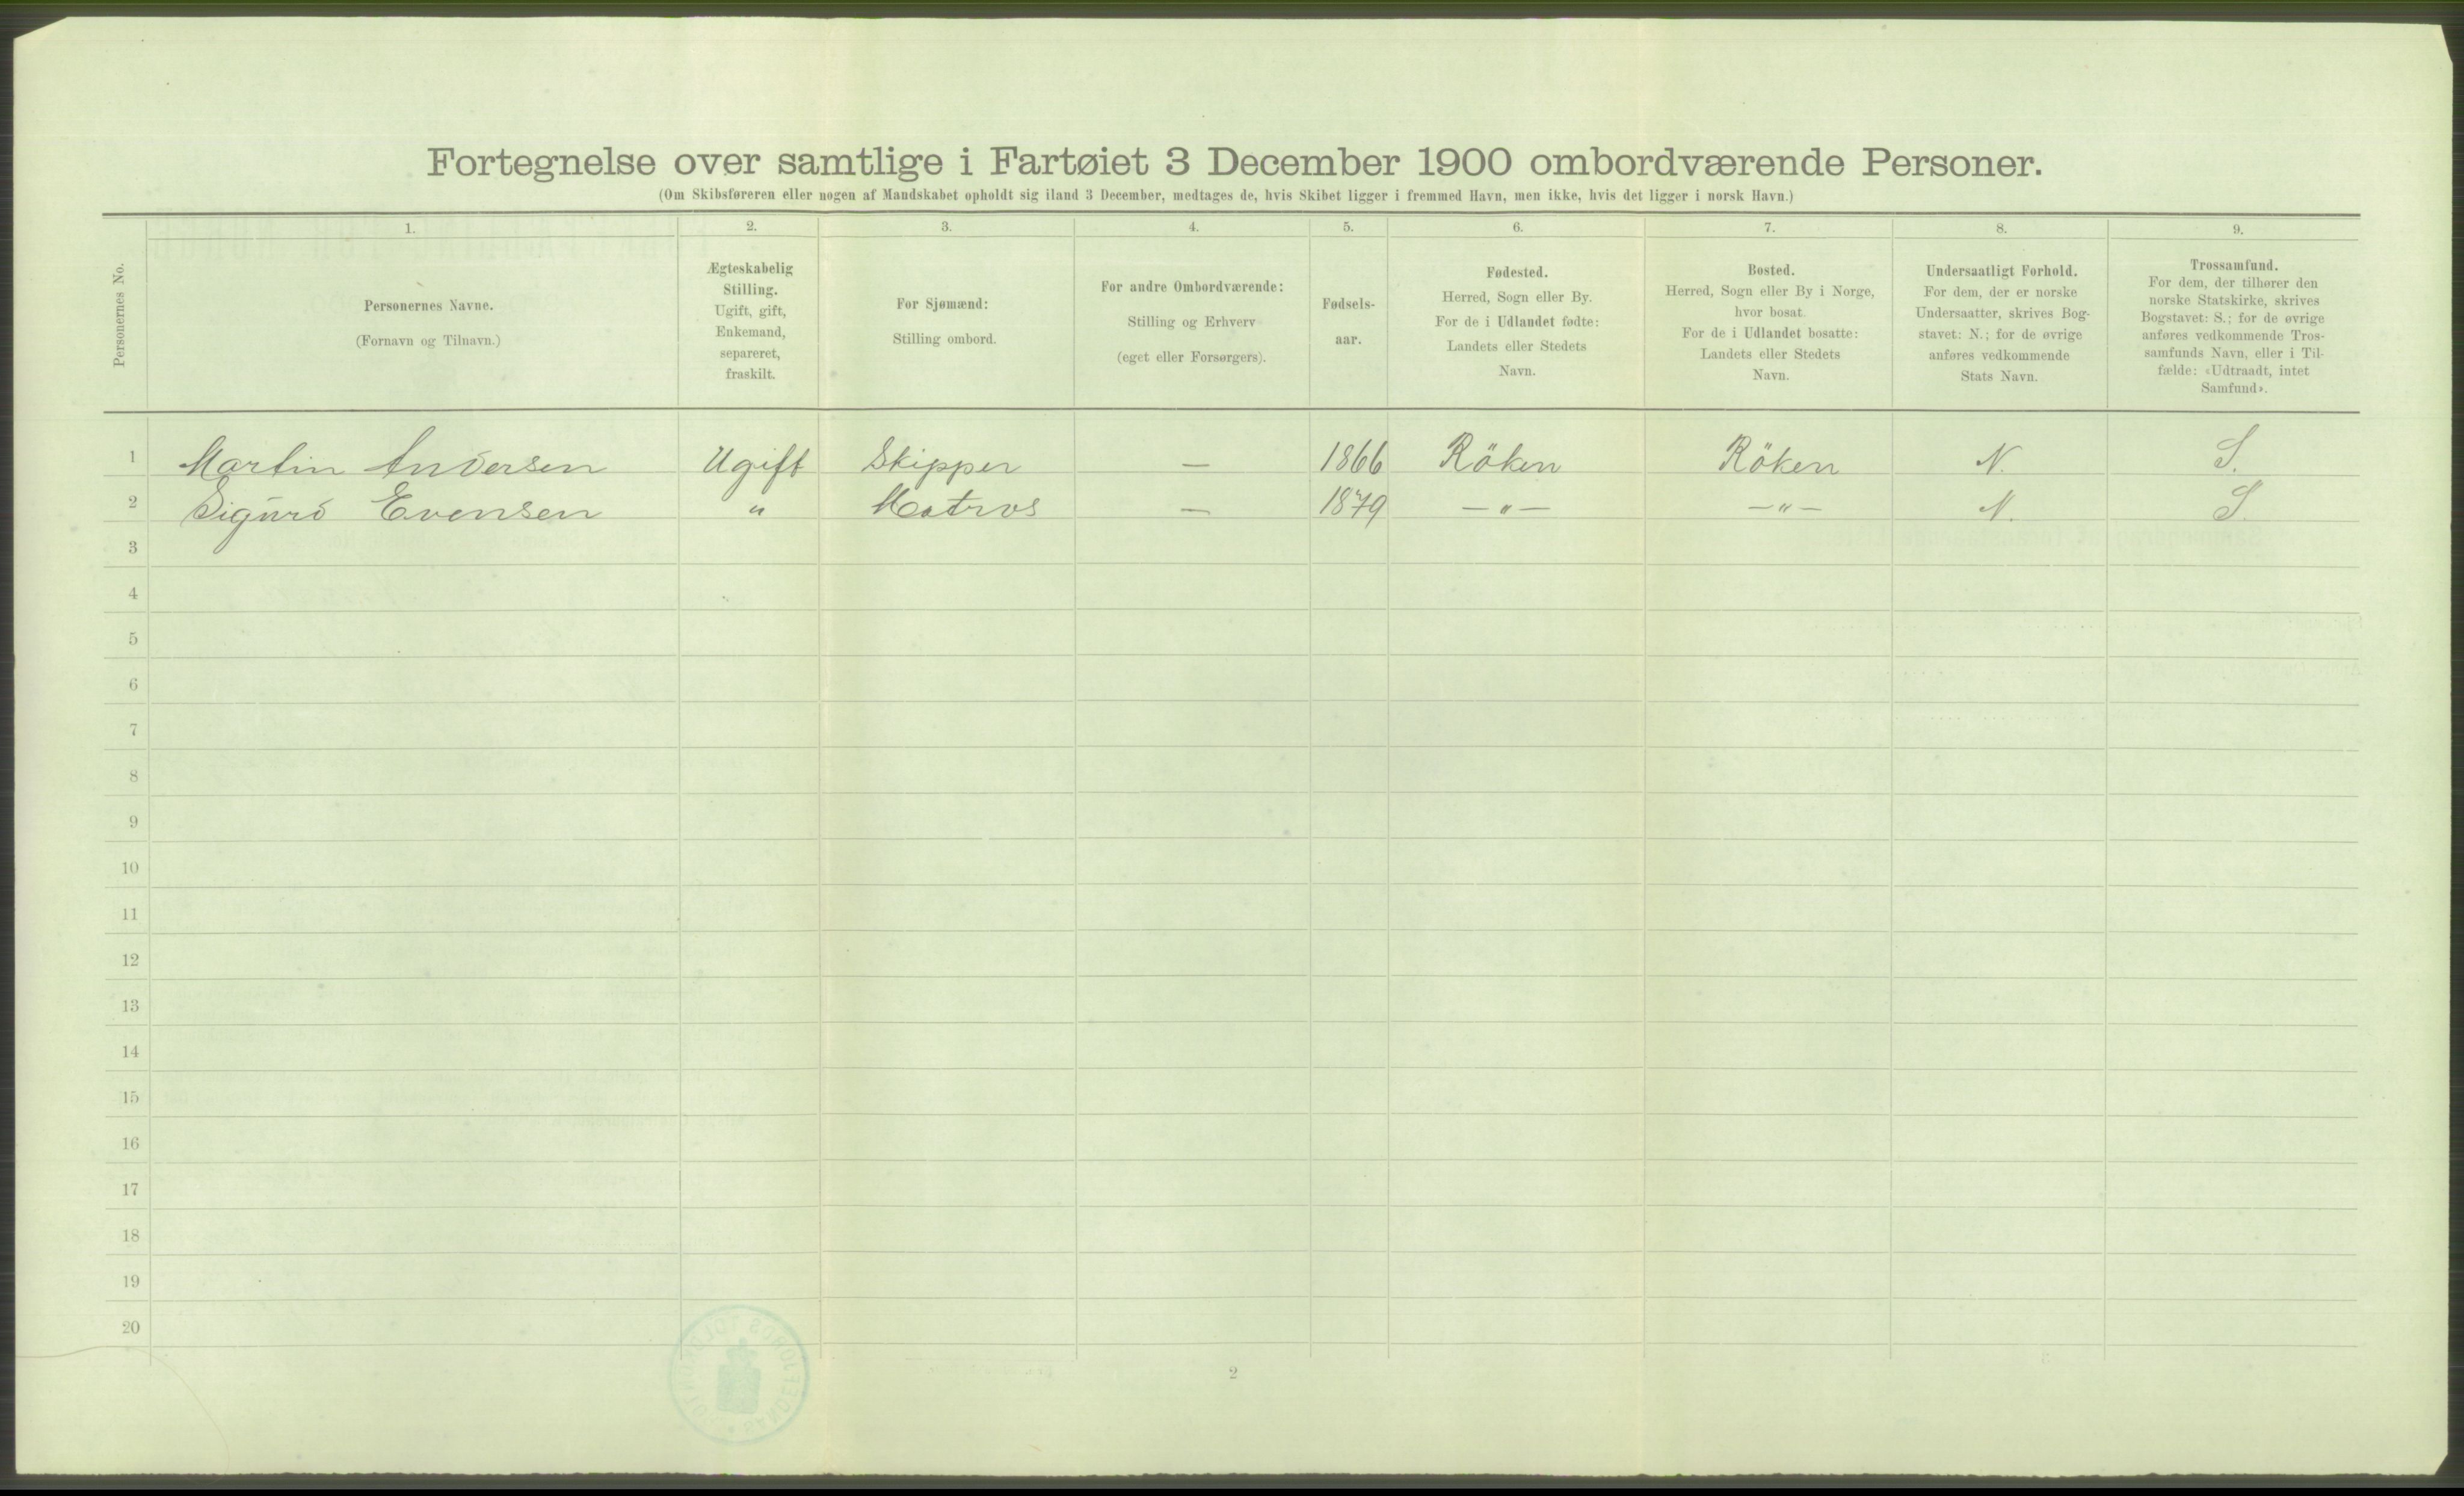 Fortegnelse over samtlige i Fartøiet 3 December 1900 ombordværende Personer.
(Om Skibsføreren eller nogen af Mandskabet opholdt sig iland 3 December, medtages de, hvis Skibet ligger i fremmed Havn, men ikke, hvis det ligger i norsk Havn.)
Personernes No.
1.
Personernes Navne.
(Fornavn og Tilnavn.)
2.
Ægteskabelig
Stilling.
Ugift, gift,
Enkemand,
separeret,
fraskilt.
3.
For Sjømænd:
Stilling ombord.
4.
For andre Ombordværende:
Stilling og Erhverv
(eget eller Forsørgers).
5.
Fødsels-
aar.
6.
Fødested.
Herred, Sogn eller By.
For de i Udlandet fødte:
Landets eller Stedets
Navn.
7.
Bosted.
Herred, Sogn eller By i Norge,
hvor bosat.
For de i Udlandet bosatte:
Landets eller Stedets
Navn.
8.
Undersaatligt Forhold.
For dem, der er norske
Undersaatter, skrives Bog-
stavet: N.; for de øvrige
anføres vedkommende
Stats Navn.
9.
Trossamfund.
For dem, der tilhører den
norske Statskirke, skrives
Bogstavet: S.; for de øvrige
anføres vedkommende Tros-
samfunds Navn, eller i Til-
fælde: «Udtraadt, intet
Samfund».
1 Martin Andersen Ugift Skipper — 1866 Röken Röken N. S.
2 Sigurd Evensen " Matros — 1879 — " — — " — N. S
3
4
5
6
7
8
9
10
11
12
13
14
15
16
17
18
19
20
2